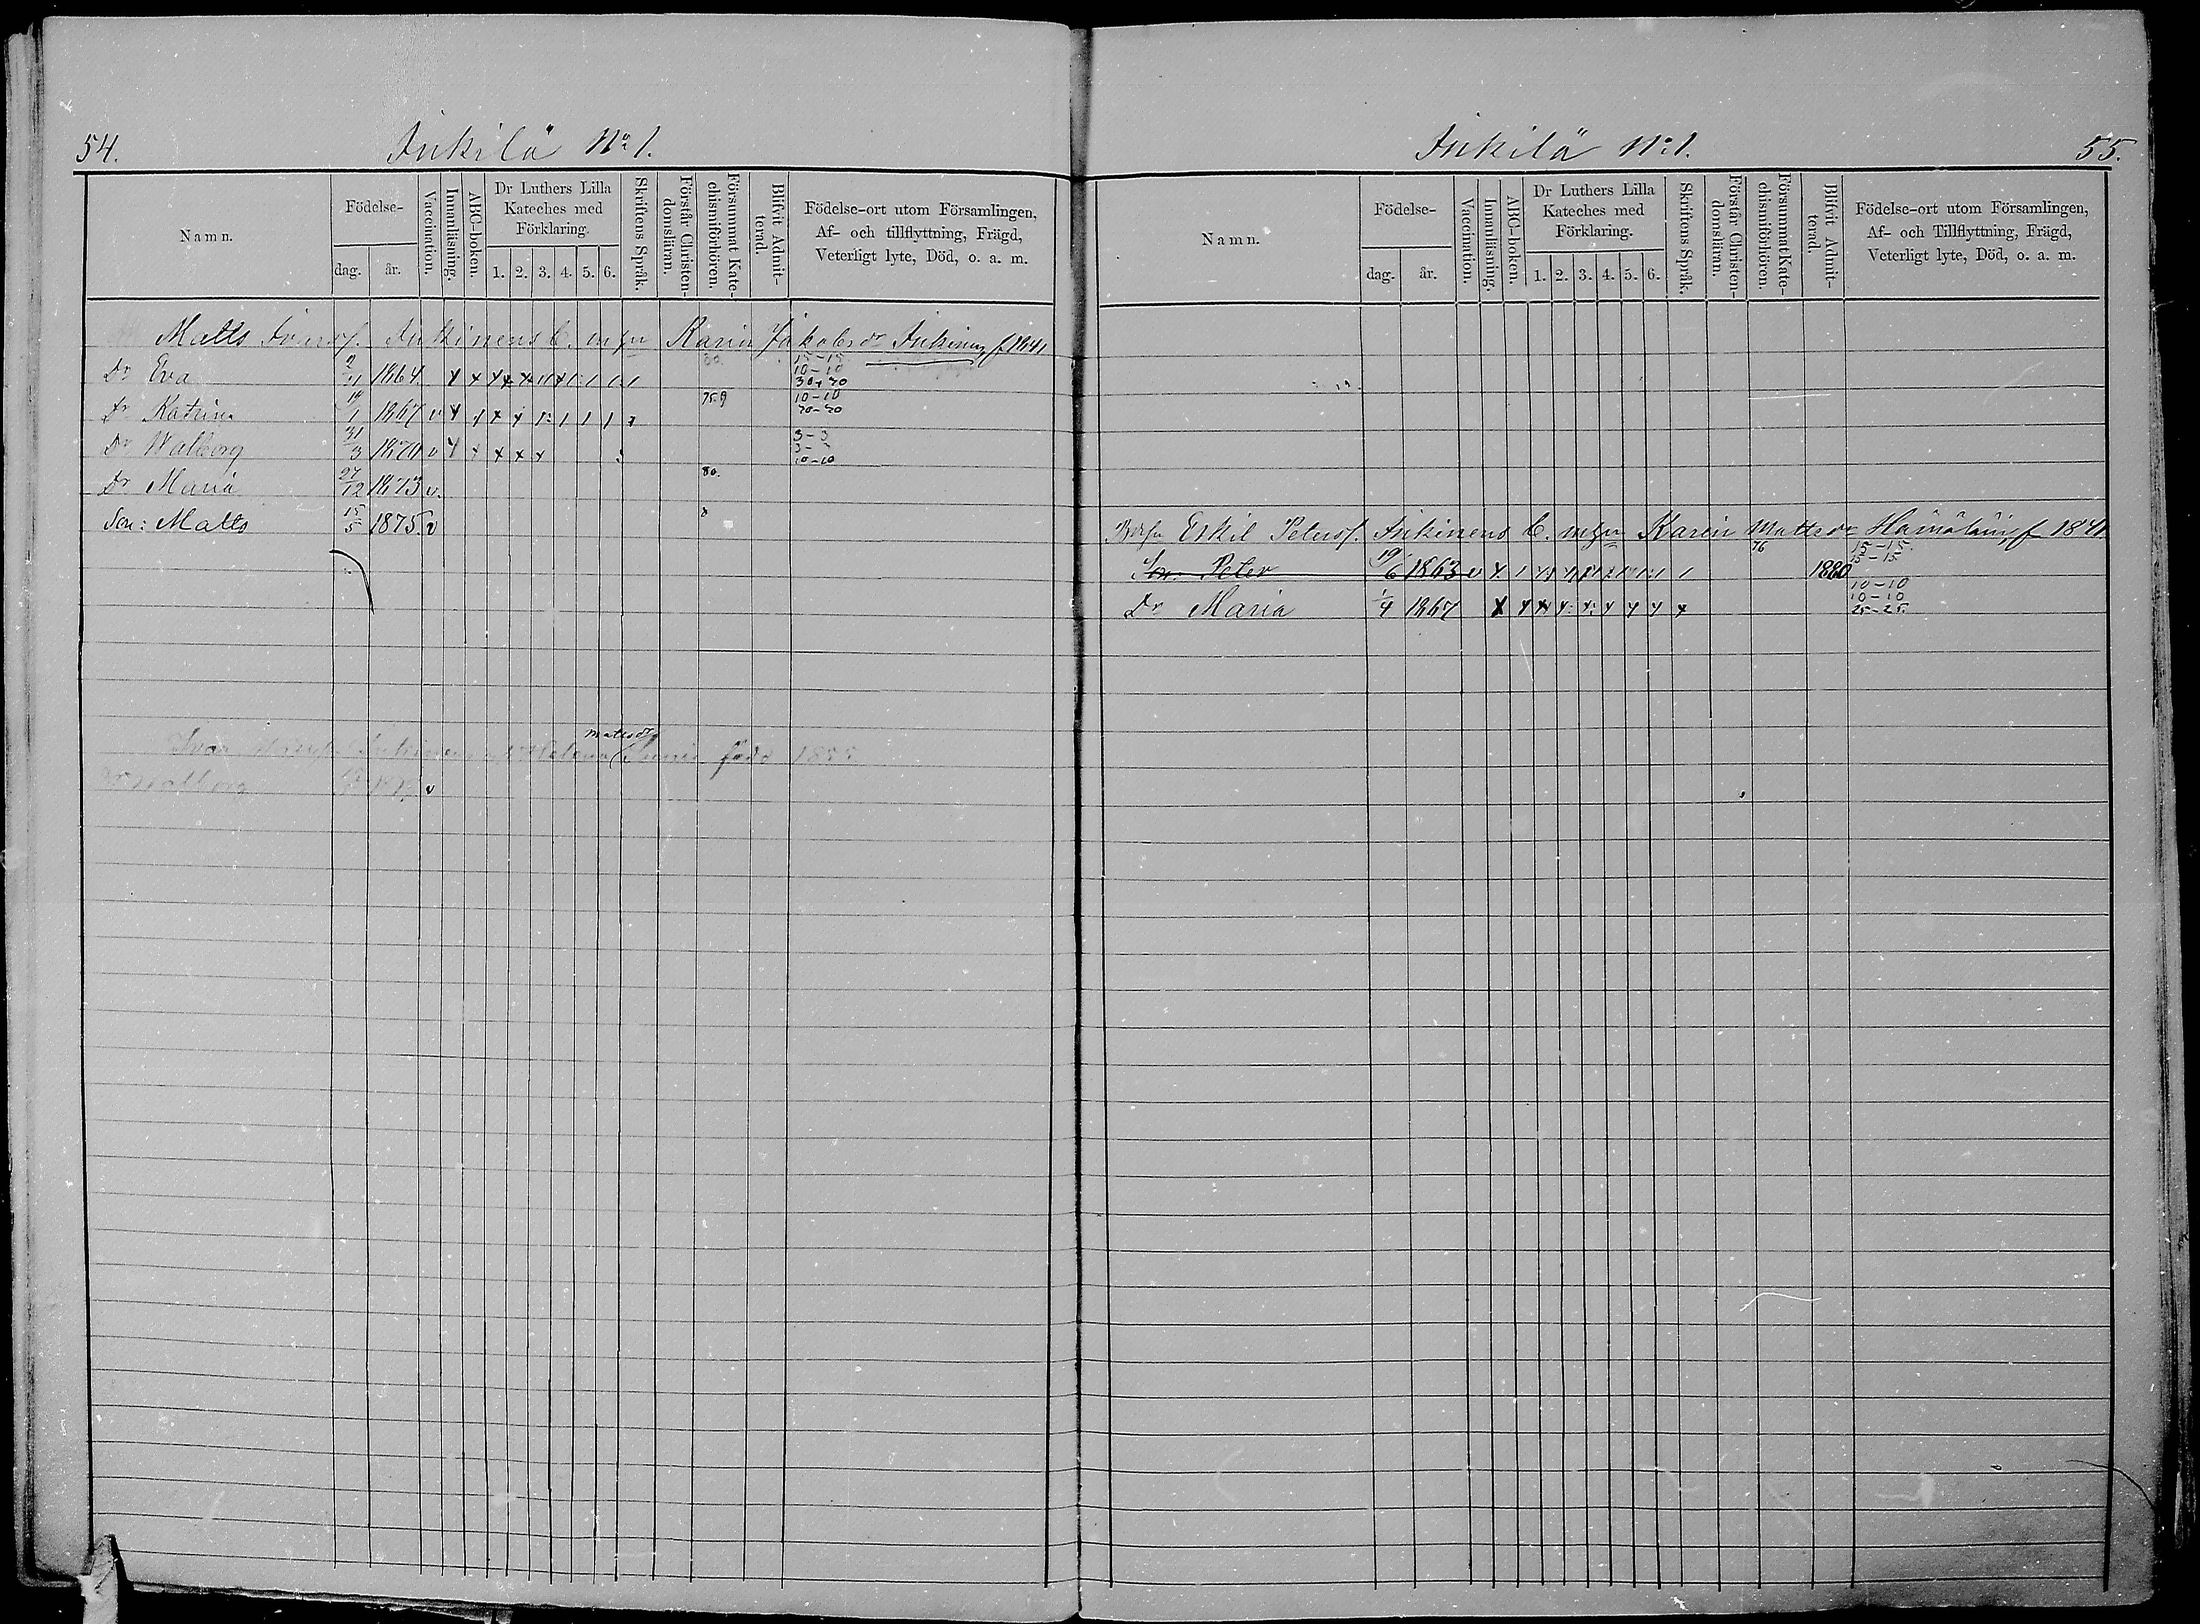 54. Inkilä No 1.
Namn. Födelse- dag. år. Vaccination. Innanläsning. ABC-boken. Dr Luthers Lilla Kateches med Förklaring. 1. 2. 3. 4. 5. 6. Skriftens Språk. Förstår Christendomsläran. Försummat Katechismiförhören. Blifvit Admitterad. Födelse-ort utom Församlingen, Af- och tillflyttning, Frägd, Veterligt lyte, Död, o. a. m.
Matts Inkinens Karin Jakobsdr Inkinen f 1841
Dr Eva 2/4 1864 x x x x x 1 1 1 15-15 10-10
Dr Katrina 14/1 1867 v x 75.9 10-10
Dr Walborg 31/3 1870 v x x x x x 3-3 10-10
Dr Maria 27/12 1873 v. 80.
Son: Matts 15/5 1875. v
Matsdr
Helena född 1855
Walborg v
Inkilä No 1. 55.
Namn. Födelse- dag. år. Vaccination. Innanläsning. ABC-boken. Dr Luthers Lilla Kateches med Förklaring. 1. 2. 3. 4. 5. 6. Skriftens Språk. Förstår Christendomsläran. Försummat Katechismiförhören. Blifvit Admitterad. Födelse-ort utom Församlingen, Af- och Tillflyttning, Frägd, Veterligt lyte, Död, o. a. m.
Eskil Petersf. Inkinens Karin Mattsdr Hämäläin f 1841
Son Peter 19/6 1863 v 76 1880 15-15. 15-15
Dr Maria 1/4 1867 x x x x x x x x x 10-10 10-10 25-25.